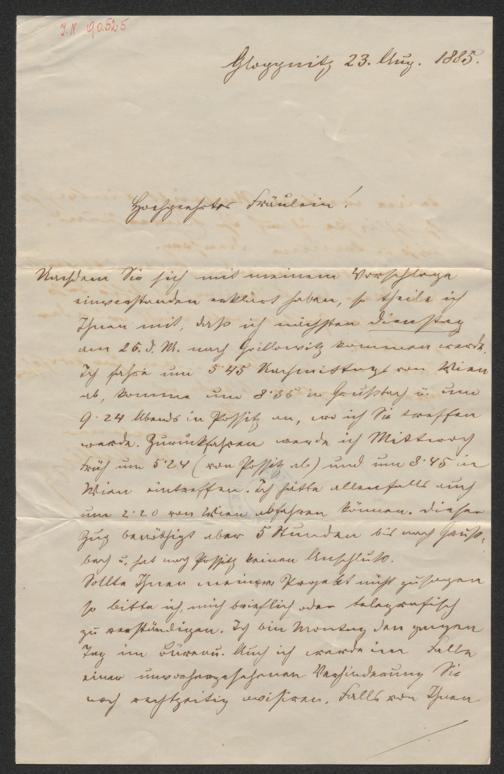 I.N 90.525
Gloggnitz 23. Aug. 1885.
Hochgeehrtes Fräulein!
Nachdem Sie sich mit meinem Vorschlage
einverstanden erklärt haben, so theile ich
Ihnen mit, daß ich nächsten Dienstag
am 25. d. M. nach Grillowitz kommen werde.
Ich fahre um 5·45 Nachmittags von Wien
ab, komme um 8·35 in Grußbach u. um
9·24 Abends in Possitz an, wo ich Sie treffen
werde. Zurückfahren werde ich Mittwoch
früh um 5·24 (von Possitz ab) und um 8·45 in
Wien eintreffen. Ich hätte allenfalls auch
um 2·20 von Wien abfahren können. Dieser
Zug benöthigt aber 5 Stunden bis nach Gruss-
bach u. hat nach Possitz keinen Anschluß.
Sollte Ihnen meine Projekt nicht zusagen
so bitte ich, mich brieflich oder telegrafisch
zu verständigen. Ich bin Montag den ganzen
Tag im Büreau. Auch ich werde im Falle
einer unvorhergesehenen Verhinderung Sie
noch rechtzeitig avisiren. Falls von Ihnen